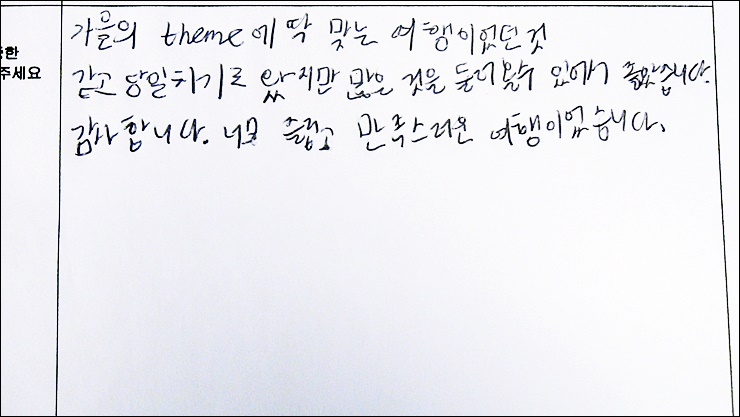 한
주세요
가을의 theme에 딱 맞는 여행이었던 것
같고 당일치기로 왔지만 많은 것을 둘러볼수 있어서 좋았습니다.
감사합니다. 너무 즐겁고 만족스러운 여행이었습니다.